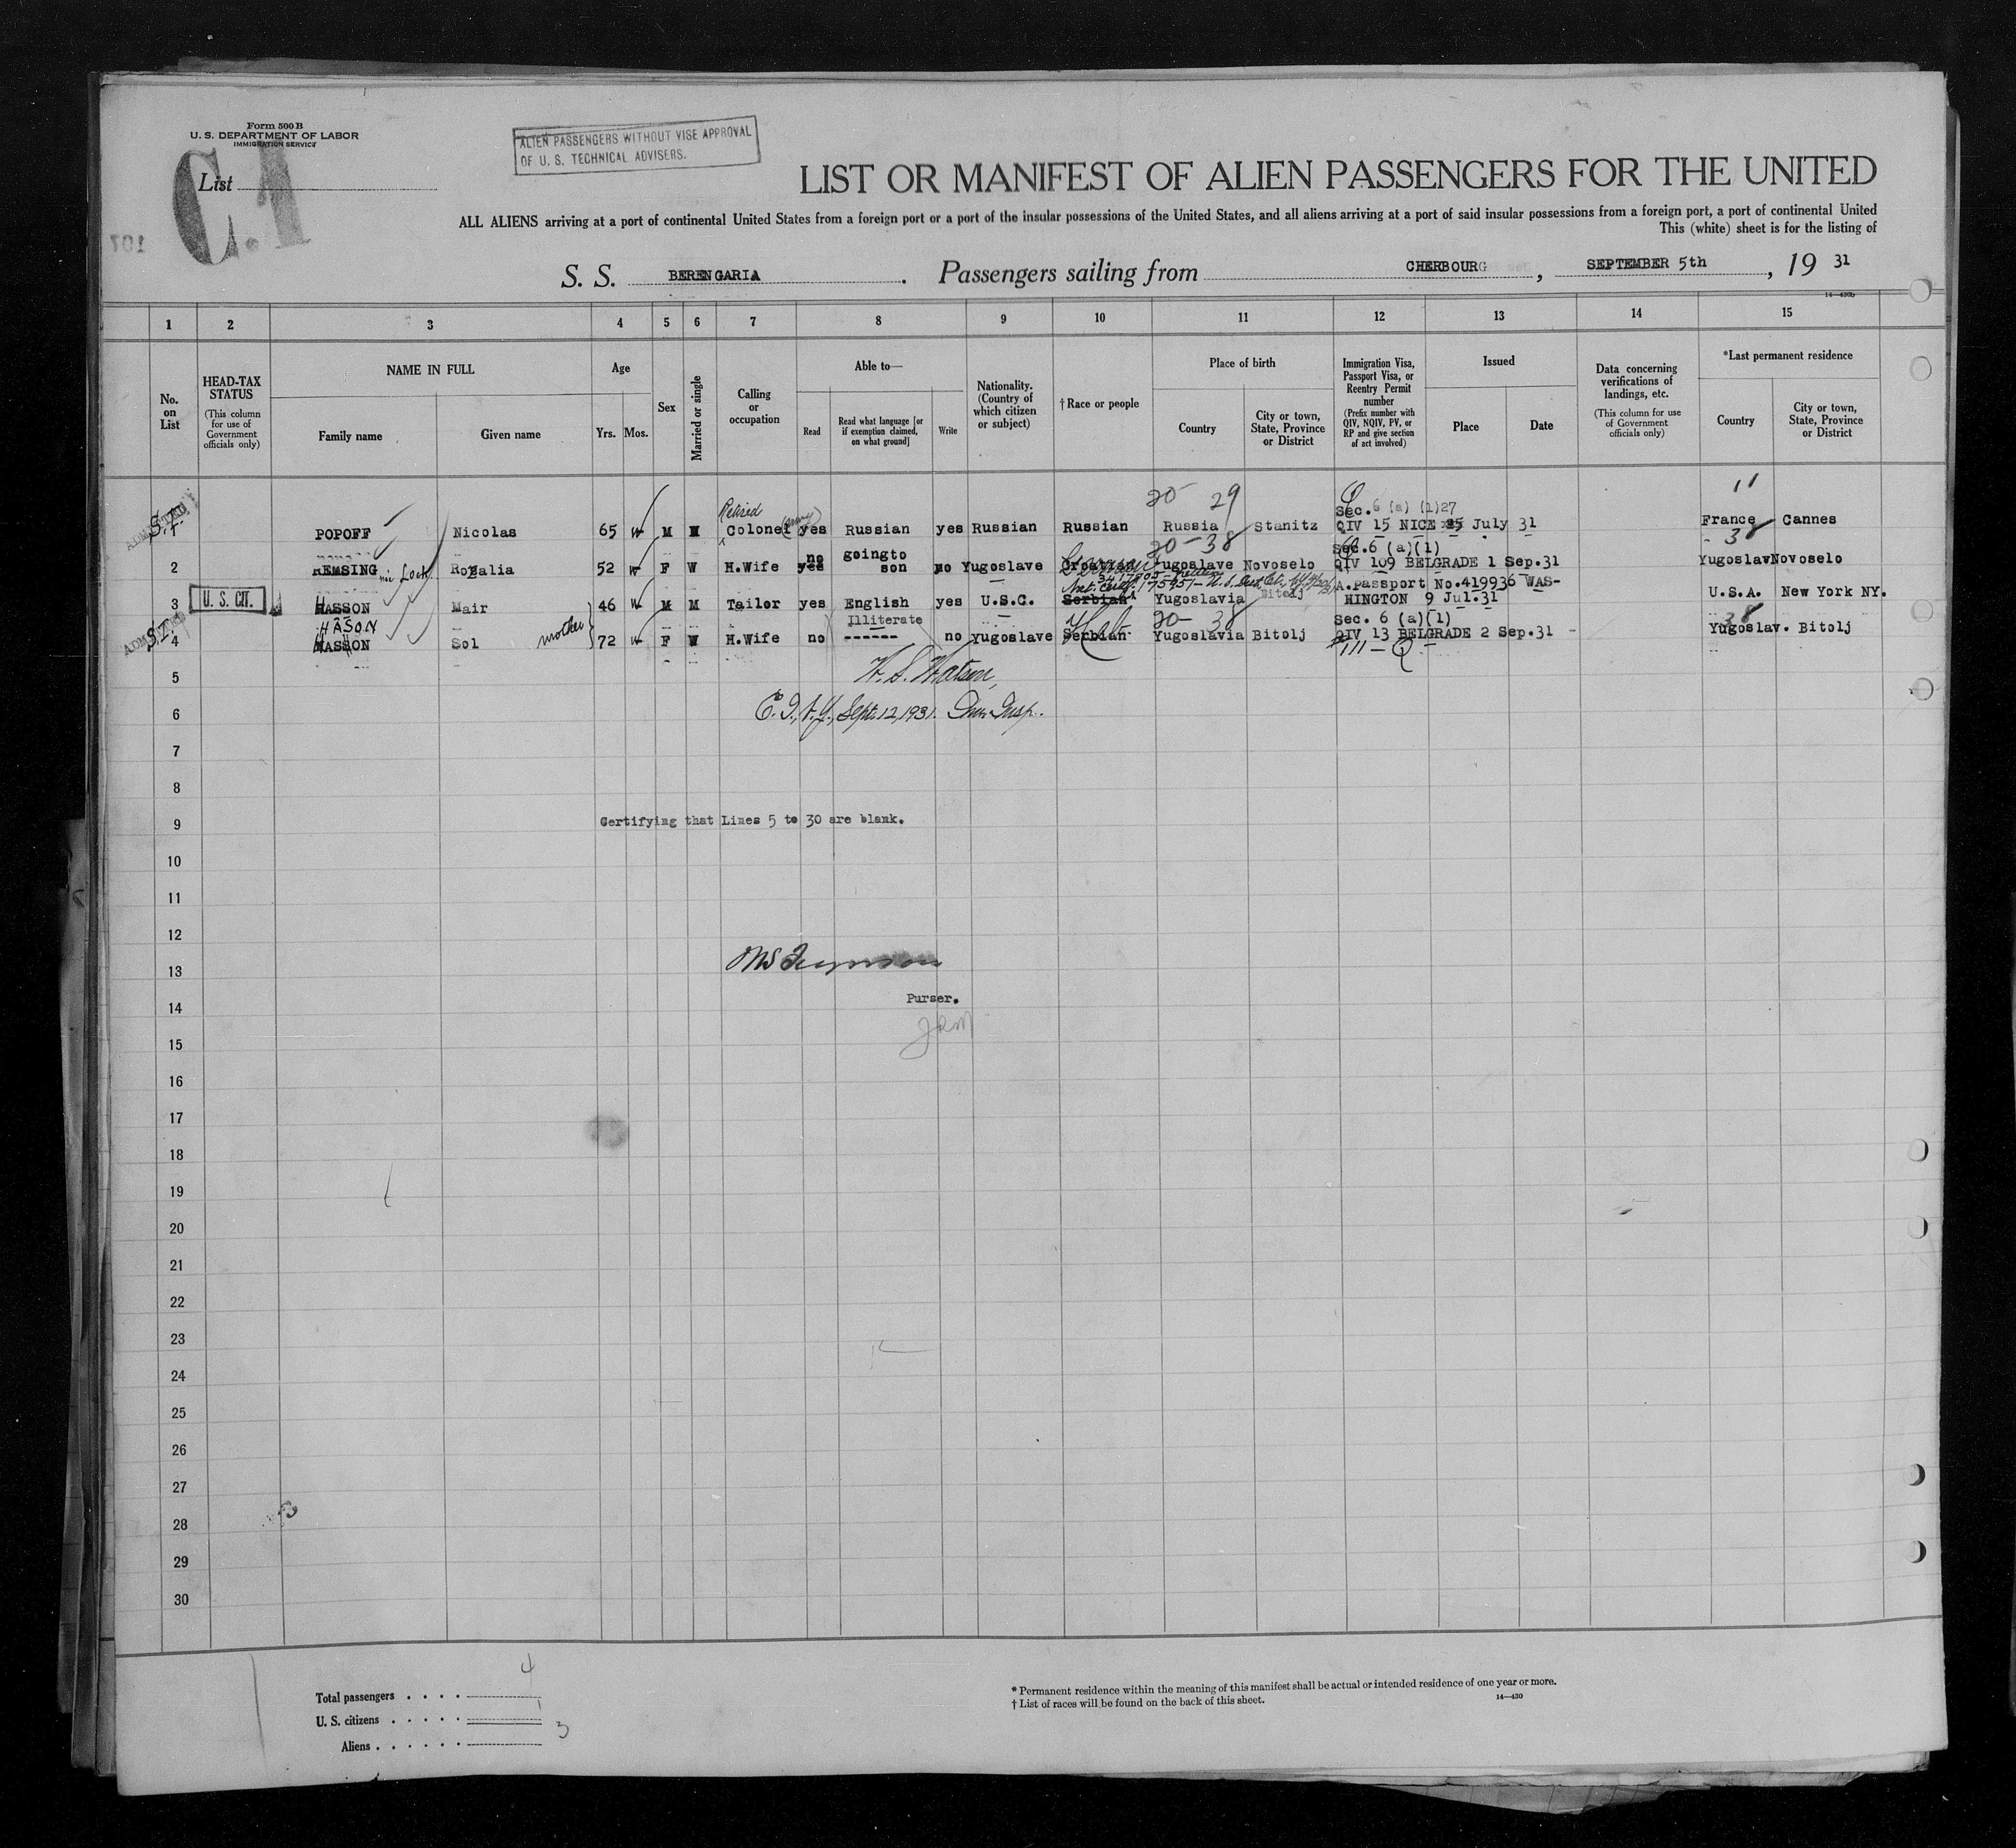 Form 500 B
U. S. DEPARTMENT OF LABOR
IMMIGRATION SERVICE
List
C.1
107
ALIEN PASSENGERS WITHOUT VISE APPROVAL
OF U. S. TECHNICAL ADVISERS.
LIST OR MANIFEST OF ALIEN PASSENGERS FOR THE UNITED
ALL ALIENS arriving at a port of continental United States from a foreign port or a port of the insular possessions of the United States, and all aliens arriving at a port of said insular possessions from a foreign port, a port of continental United
This (white) sheet is for the listing of
S. S. BERENGARIA . Passengers sailing from CHERBOURG , SEPTEMBER 5th , 19 31
14—430b
1 2 3 4 5 6 7 8 9 10 11 12 13 14 15
No. on List
HEAD-TAX STATUS (This column for use of Government officials only)
NAME IN FULL
Family name Given name
Age
Yrs. Mos.
Sex
Married or single
Calling or occupation
Able to—
Read
Read what language [or if exemption claimed, on what ground]
Write
Nationality. (Country of which citizen or subject)
† Race or people
Place of birth
Country
City or town, State, Province or District
Immigration Visa, Passport Visa, or Reentry Permit number (Prefix number with QIV, NQIV, PV, or RP and give section of act involved)
Issued
Place Date
Data concerning verifications of landings, etc. (This column for use of Government officials only)
*Last permanent residence
Country
City or town, State, Province or District
20 29 11
Retired (army) Sec. 6 (a) (1)27
ADMITTED S.I.
1 POPOFF Nicolas 65 M Colonel yes Russian yes Russian Russian Russia Stanitz QIV 15 NICE 25 July 31 France Cannes
no going to 20-38 Sec.6 (a)(1) 38
2 REMSING Rozalia 52 F W H.Wife yes son no Yugoslave Croatian Yugoslave Novoselo QIV 109 BELGRADE 1 Sep.31 Yugoslav Novoselo
U. S. CIT.
3 HASSON Mair 46 M M Tailor yes English yes U.S.C. Serbian Yugoslavia Bitolj A.Passport No.419936 WAS-
HINGTON 9 Jul.31 U.S.A. New York NY.
HASON mother Illiterate Heb 20-38 Sec. 6 (a)(1) 38
ADMITTED S.I.
4 HASSON Sol 72 F W H.Wife no ------ no Yugoslave Serbian Yugoslavia Bitolj QIV 13 BELGRADE 2 Sep.31 Yugoslav. Bitolj
5 W. S. Watson,
6 E. I., N.Y., Sept. 12, 1931. Imm. Insp.
7
8
9 Certifying that Lines 5 to 30 are blank.
10
11
12
13
14 Purser.
15
16
17
18
19
20
21
22
23
24
25
26
27
28
29
30
Total passengers . . . . 4
U. S. citizens . . . . . 1
Aliens . . . . . . 3
* Permanent residence within the meaning of this manifest shall be actual or intended residence of one year or more.
† List of races will be found on the back of this sheet.
14—430